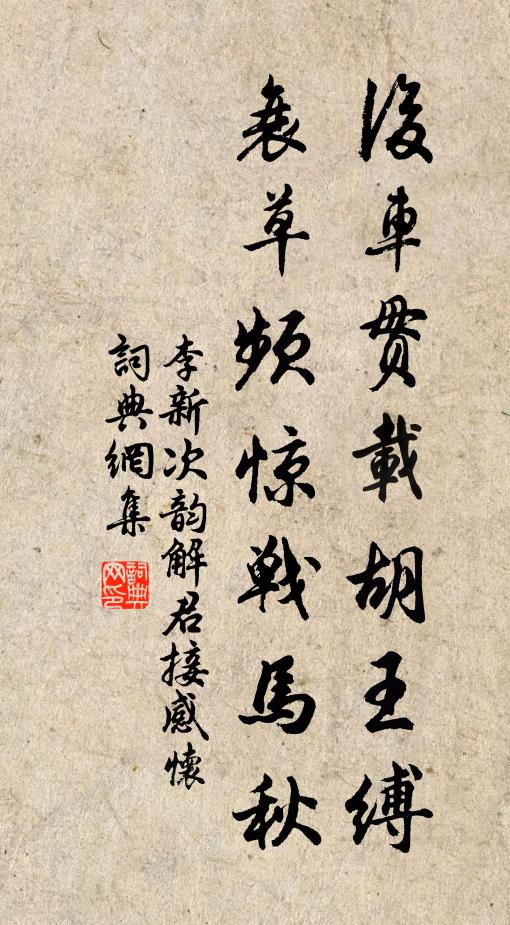 後車貫載胡王縛
衰草频惊戦馬秋
李新次韵解君接感懷
詞典網集
詞典网印